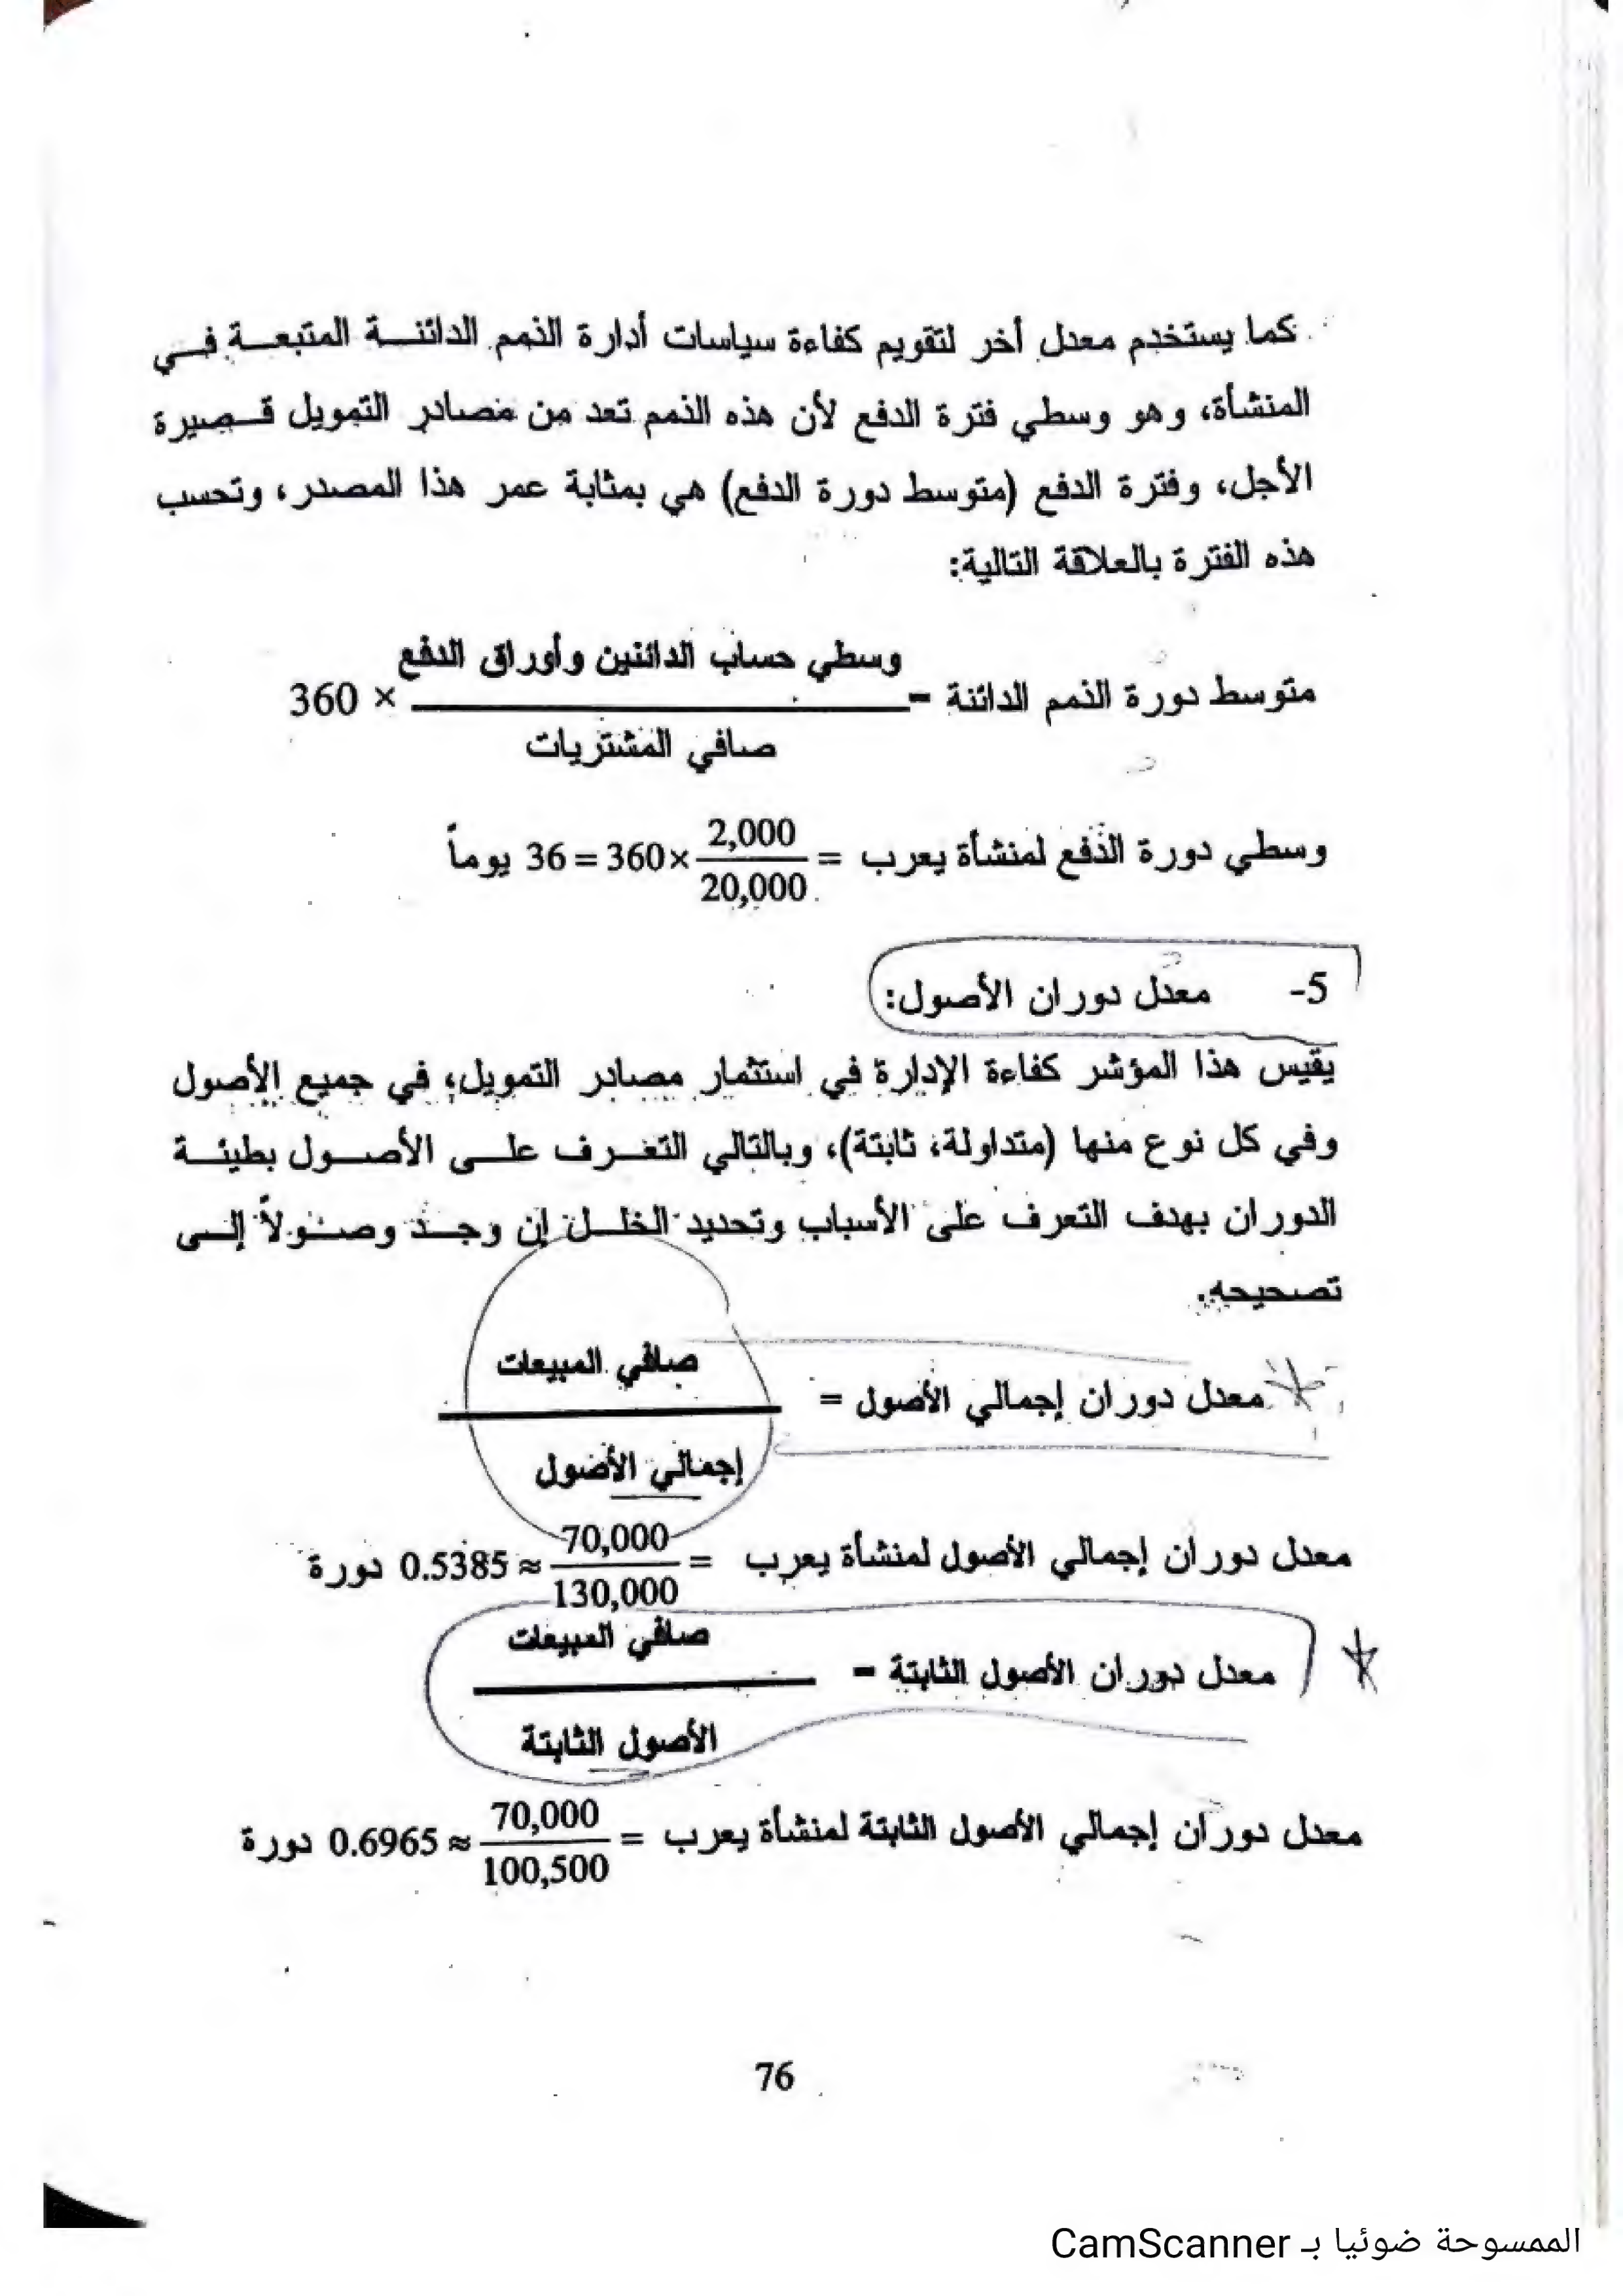 كما يستخدم معدل أخر لتقويم كفاءة سياسات أدارة الذمم الدائنة المتبعة في
المنشأة، وهو وسطي فترة الدفع لأن هذه الذمم تعد من مصادر التمويل قصيرة
الأجل، وفترة الدفع (متوسط دورة الدفع) هي بمثابة عمر هذا المصدر، وتحسب
هذه الفترة بالعلاقة التالية:
وسطي حساب الدائنين وأوراق الدفع
متوسط دورة الذمم الدائنة = × 360
صافي المشتريات
2,000
وسطي دورة الدفع لمنشأة يعرب = ×360 = 36 يوماً
20,000
5- معدل دوران الأصول:
يقيس هذا المؤشر كفاءة الإدارة في استثمار مصادر التمويل، في جميع الأصول
وفي كل نوع منها (متداولة، ثابتة)، وبالتالي التعرف على الأصول بطيئة
الدوران بهدف التعرف على الأسباب وتحديد الخلل إن وجد وصولاً إلى
تصحيحه.
صافي المبيعات
معدل دوران إجمالي الأصول =
إجمالي الأصول
70,000
معدل دوران إجمالي الأصول لمنشأة يعرب = ≈ 0.5385 دورة
130,000
صافي المبيعات
معدل دوران الأصول الثابتة =
الأصول الثابتة
70,000
معدل دوران إجمالي الأصول الثابتة لمنشأة يعرب = ≈ 0.6965 دورة
100,500
76
الممسوحة ضوئيا بـ CamScanner